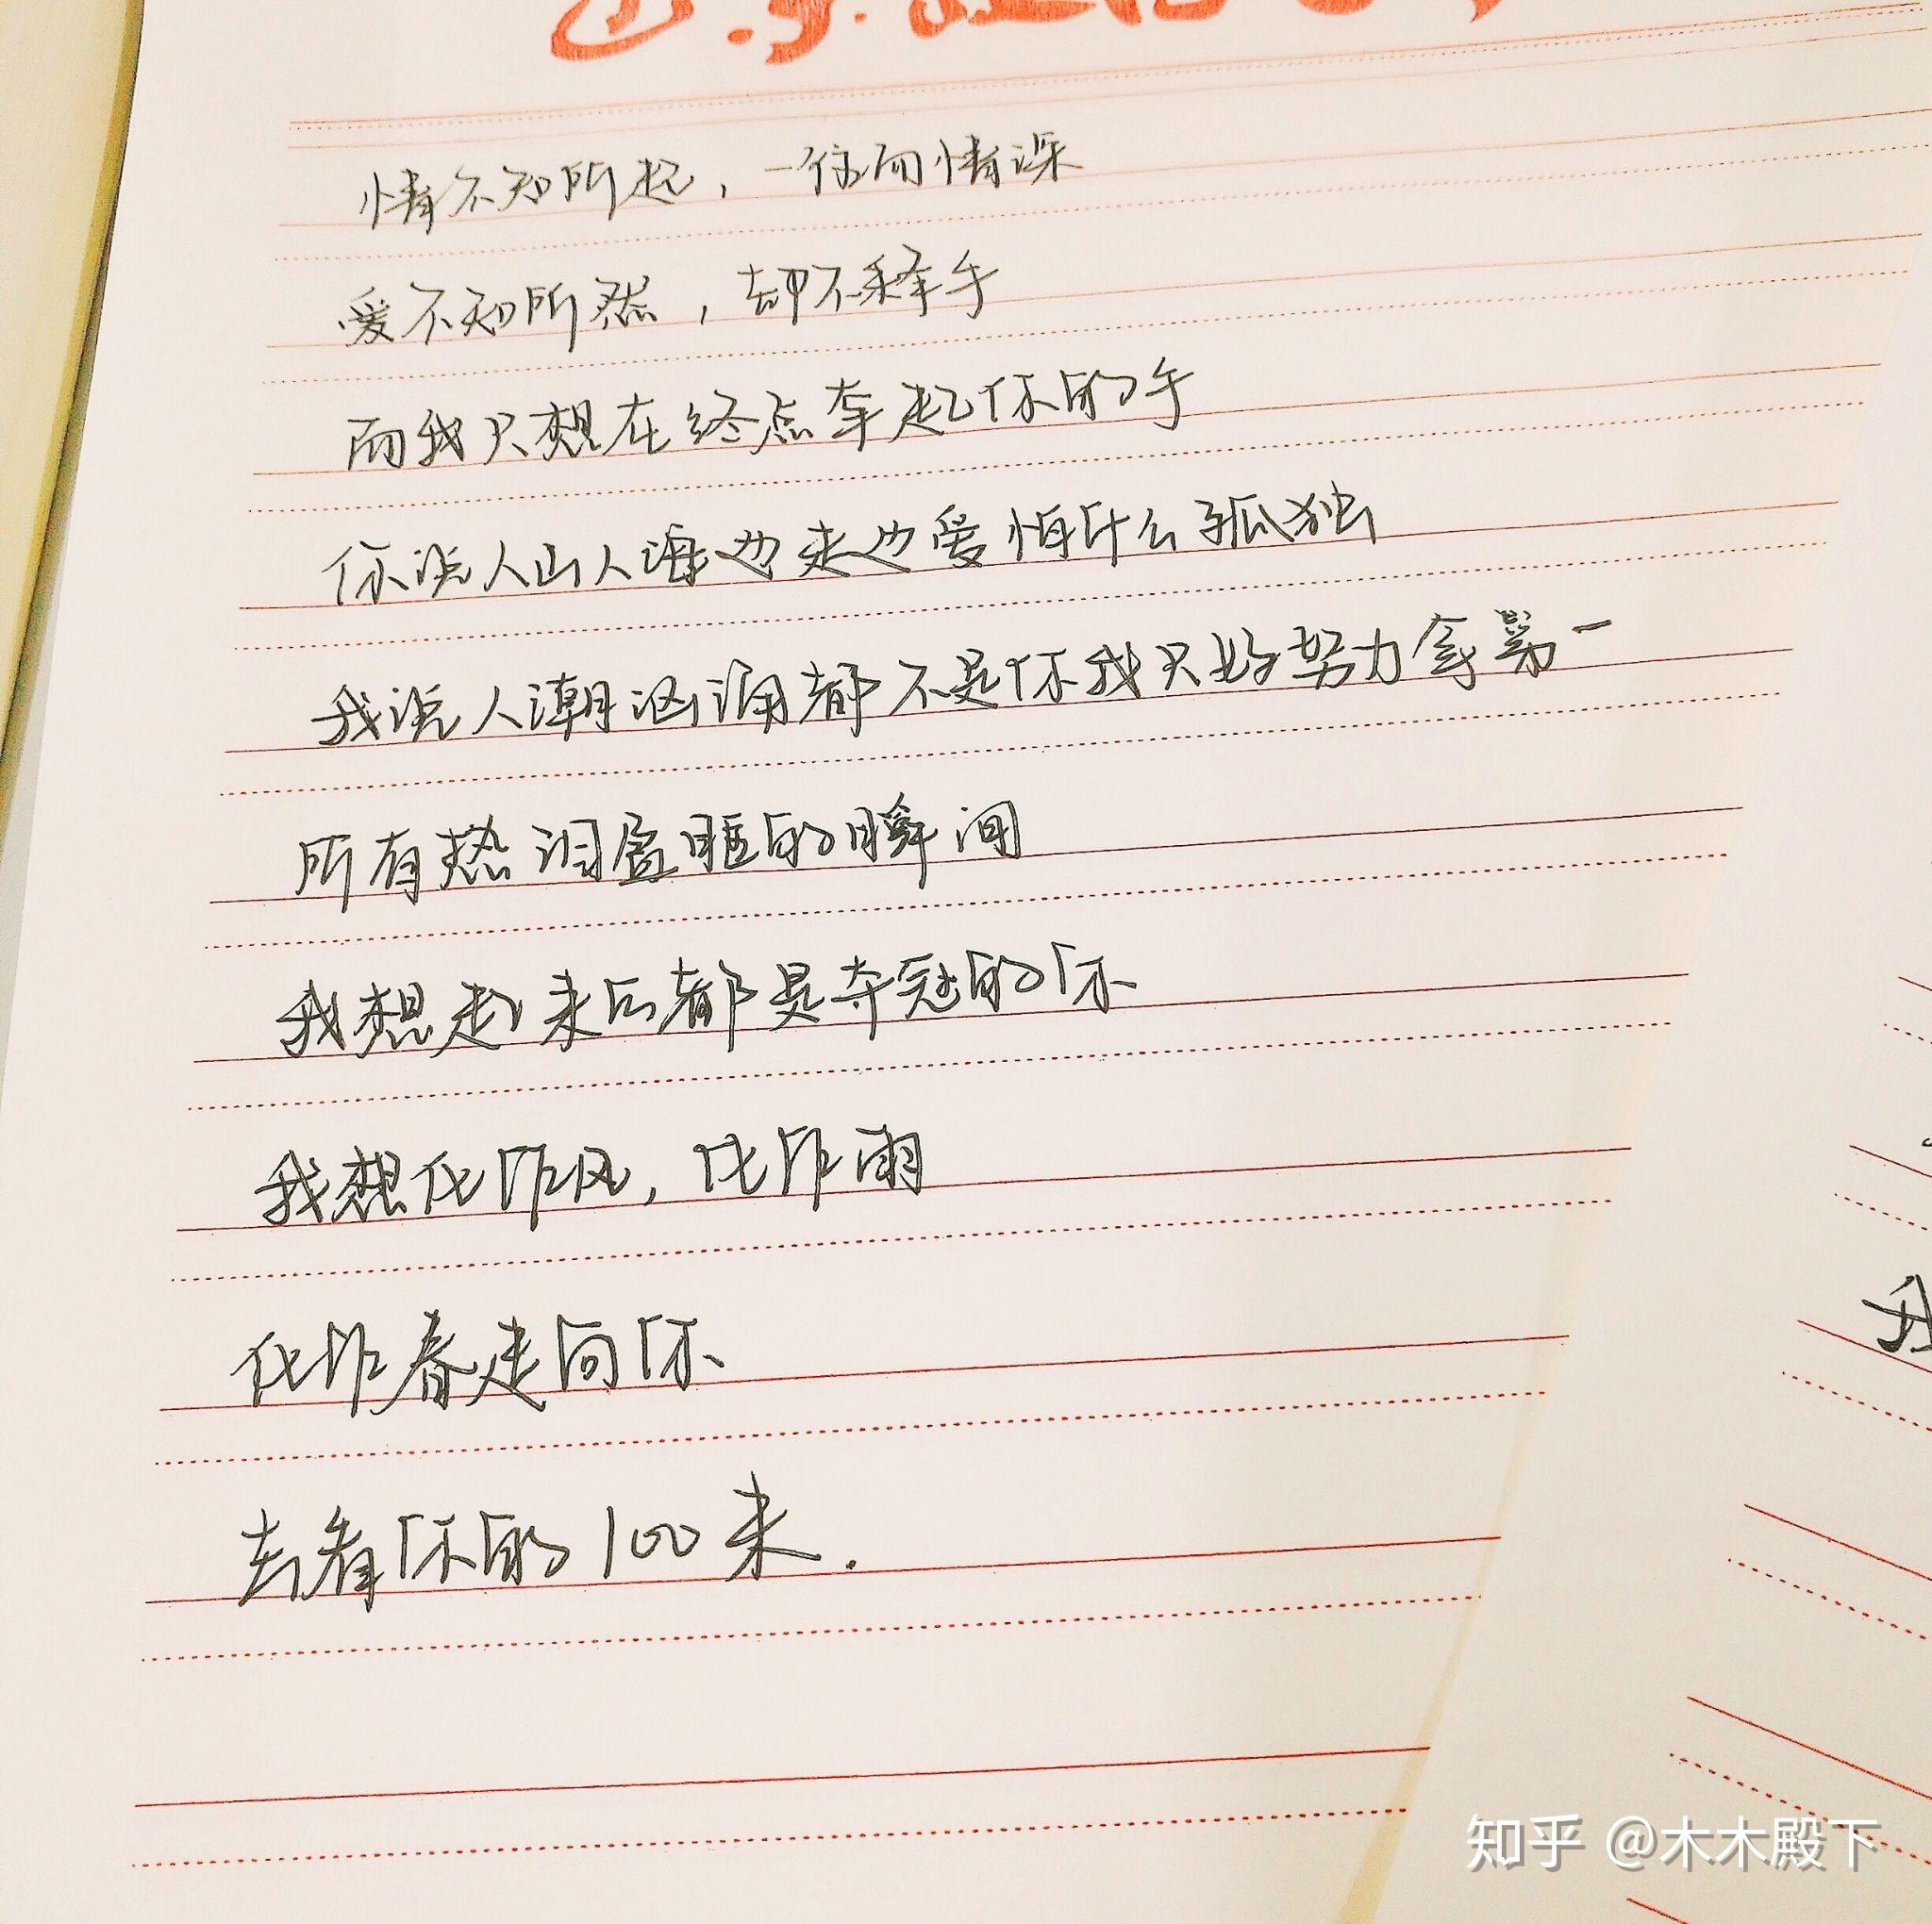 情不知所起，一往而情深
爱不知所然，却不释手
而我只想在终点牵起你的手
你说人山人海边走边爱怕什么孤独
我说人潮汹涌都不是你我只好努力拿第一
所有热泪盈眶的瞬间
我想起来后都是夺冠的你
我想化作风，化作雨
化作春走向你
去看你的100米.
我
知乎 @木木殿下